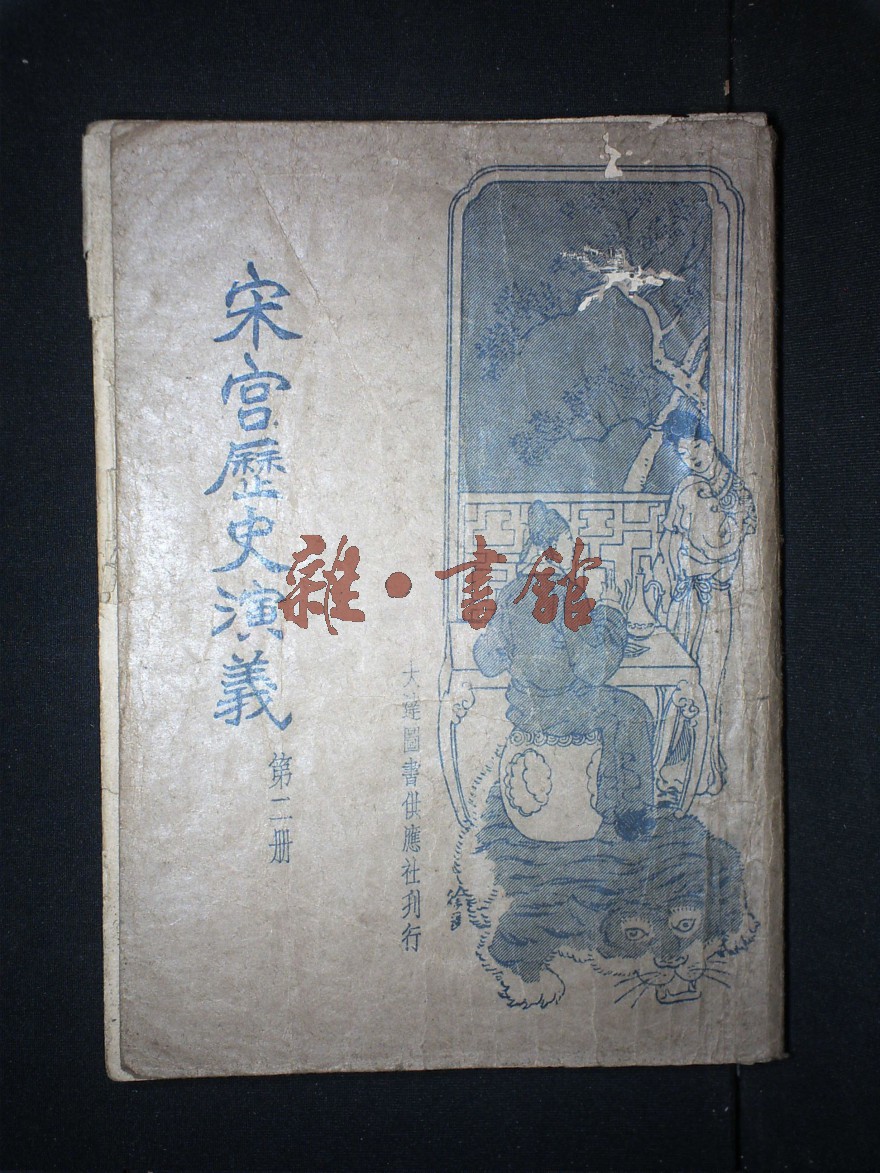 宋宮歷史演義
第二册
大達圖書供應社刋行
雜·書館